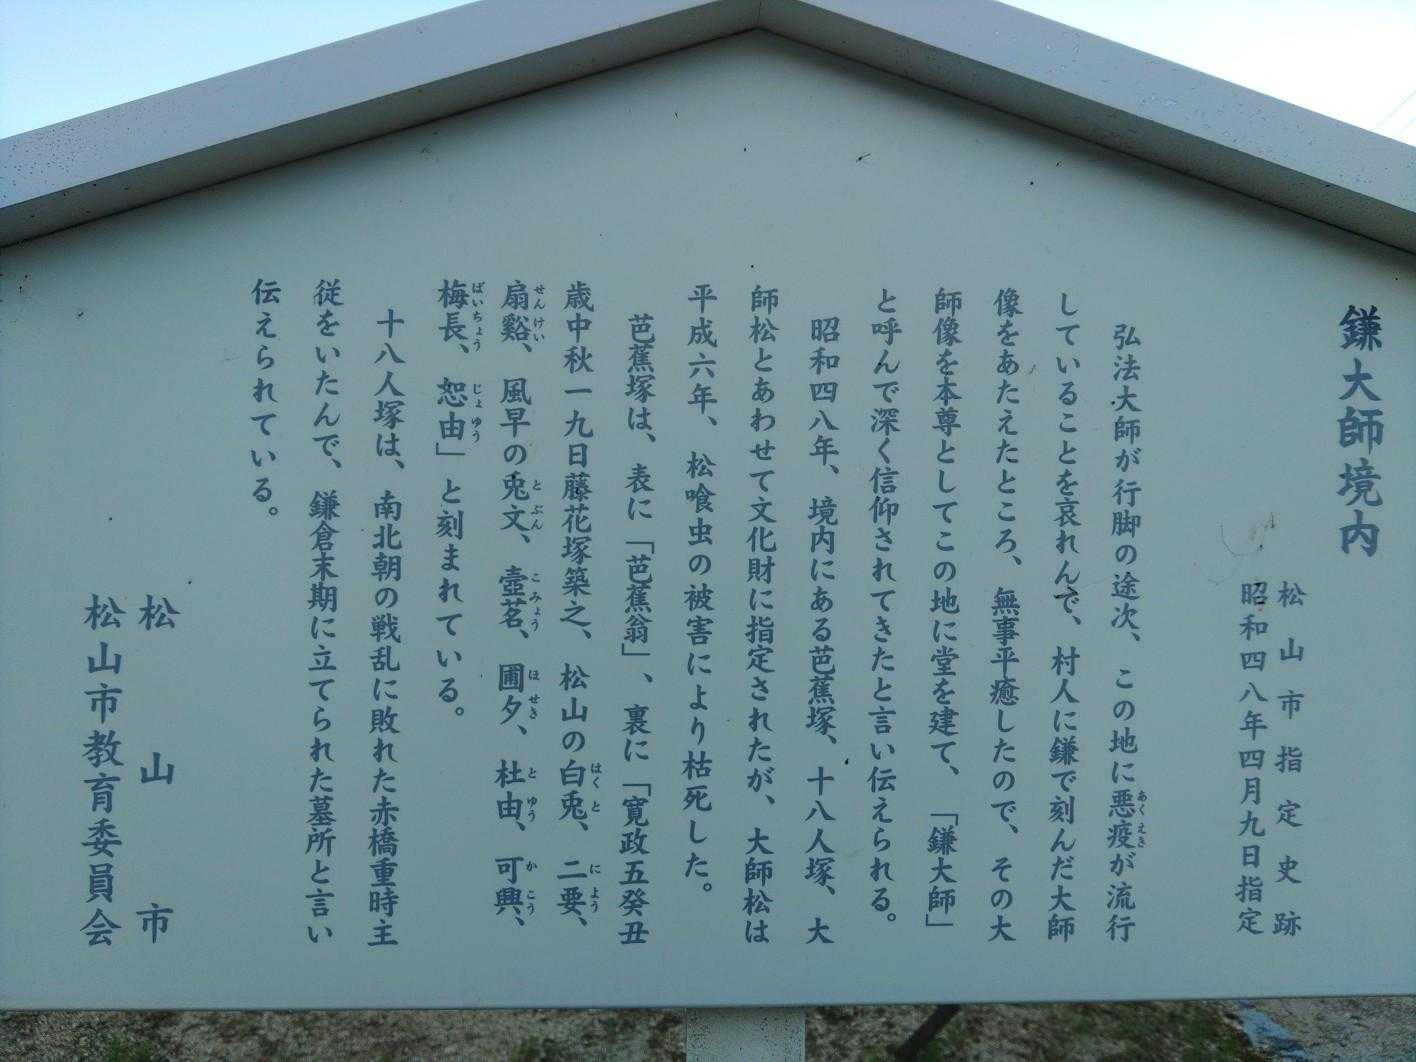 鎌大師境内
松山市指定史跡
昭和四八年四月九日指定
弘法大師が行脚の途次、この地に悪疫が流行
あくえき
していることを哀れんで、村人に鎌で刻んだ大師
像をあたえたところ、無事平癒したので、その大
師像を本尊としてこの地に堂を建て、「鎌大師」
と呼んで深く信仰されてきたと言い伝えられる。
昭和四八年、境内にある芭蕉塚、十八人塚、大
師松とあわせて文化財に指定されたが、大師松は
平成六年、松喰虫の被害により枯死した。
芭蕉塚は、表に「芭蕉翁」、裏に「寛政五癸丑
歳中秋一九日藤花塚築之、松山の白兎、二要、
はくと によう
扇谿、風早の兎文、壺茗、圃夕、杜由、可興、
せんけい とぶん こみょう ほせき とゆう かこう
梅長、恕由」と刻まれている。
ばいちょう じょゆう
十八人塚は、南北朝の戦乱に敗れた赤橋重時主
従をいたんで、鎌倉末期に立てられた墓所と言い
伝えられている。
松山市
松山市教育委員会